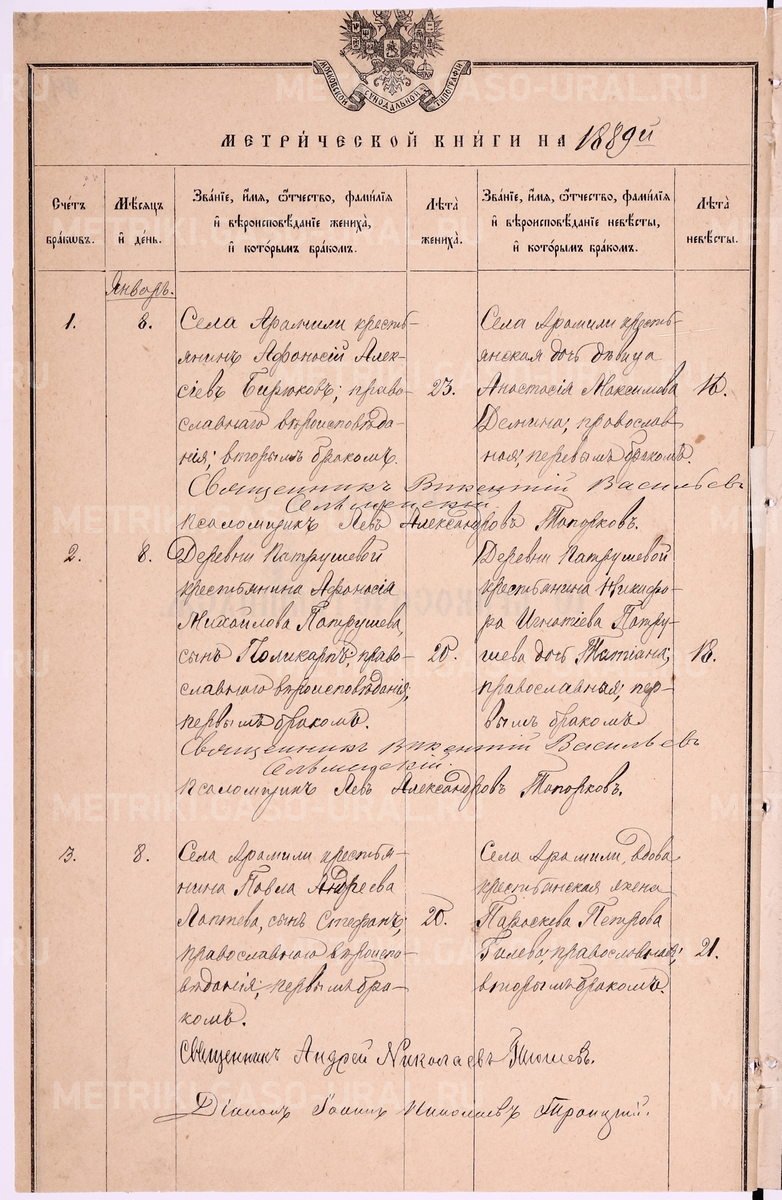 МОСКОВСКОЙ СѴНОДАЛЬНОЙ ТИПОГРАФІИ
МЕТРИ́ЧЕСКОЙ КНИ́ГИ НА 1889й
Сче́тъ бра́кѡвъ.
Мѣ́сяцъ и҆ де́нь.
Зва́нїе, и҆́мя, ѻ҆́тчество, фами́лїя и҆ вѣроисповѣ́данїе жениха̀, и҆ кото́рымъ бра́комъ.
Лѣ́та жениха̀.
Зва́нїе, и҆́мя, ѻ҆́тчество, фами́лїя и҆ вѣроисповѣ́данїе невѣ́сты, и҆ кото́рымъ бра́комъ.
Лѣ́та невѣ́сты.
Январь.
1.
8.
Села Арамили кресть-
янинъ Афонасій Алек-
сіевъ Бирюковъ; право-
славнаго вѣроисповѣда-
нія; вторымъ бракомъ.
23.
Села Арамили кресть-
янская дочь дѣвица
Анастасія Максимова
Демина; православ
ная; первымъ бракомъ.
16.
Священникъ Викентій Васильевъ
Сельменскій
псаломщикъ Левъ Александровъ Топорковъ.
2.
8.
Деревни Патрушевой
крестьянина Афонасія
Михайлова Патрушева,
сынъ Поликарпъ; право-
славнаго вѣроисповѣданія;
первымъ бракомъ.
20.
Деревни Патрушевой
крестьянина Никифо-
ра Игнатіева Патру-
шева дочь Татіана;
православная; пер-
вымъ бракомъ
18.
Священникъ Викентій Васильевъ
псаломщикъ Левъ Александровъ Топорковъ.
3.
8.
Села Арамили крестья-
нина Павла Андреева
Лаптева, сынъ Стефанъ;
православнаго вѣроиспо-
вѣданія; первымъ бра-
комъ.
20.
Села Арамили, вдова
крестьянская жена
Параскева Петрова
Галева, православная;
вторымъ бракомъ.
21.
Священникъ Андрей Николаевъ
Діаконъ Іоаннъ Николаевъ Троицкій.
METRIKI.GASO-URAL.RU